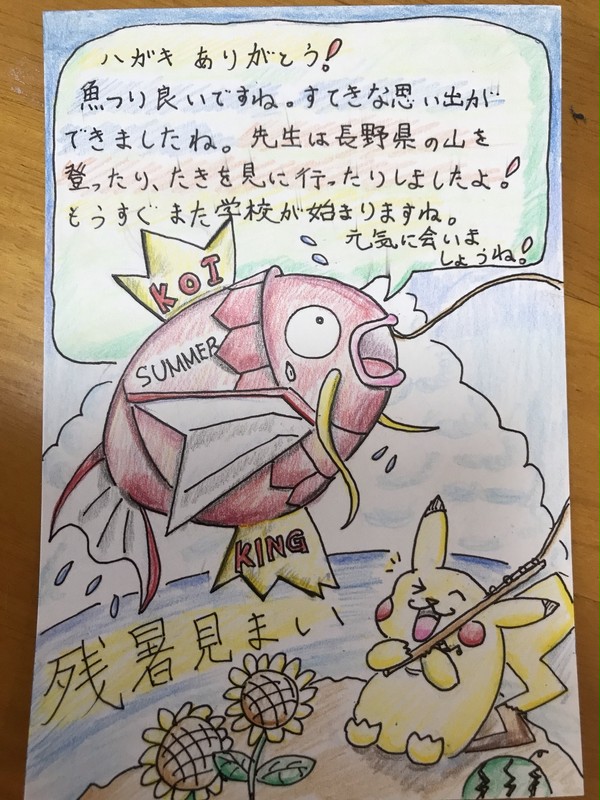 ハガキ ありがとう!
魚つり良いですね。すてきな思い出が
できましたね。先生は長野県の山を
登ったり、たきを見に行ったりしましたよ!
もうすぐまた学校が始まりますね。
元気に会いま
しょうね!
KOI
SUMMER
KING
残暑見まい